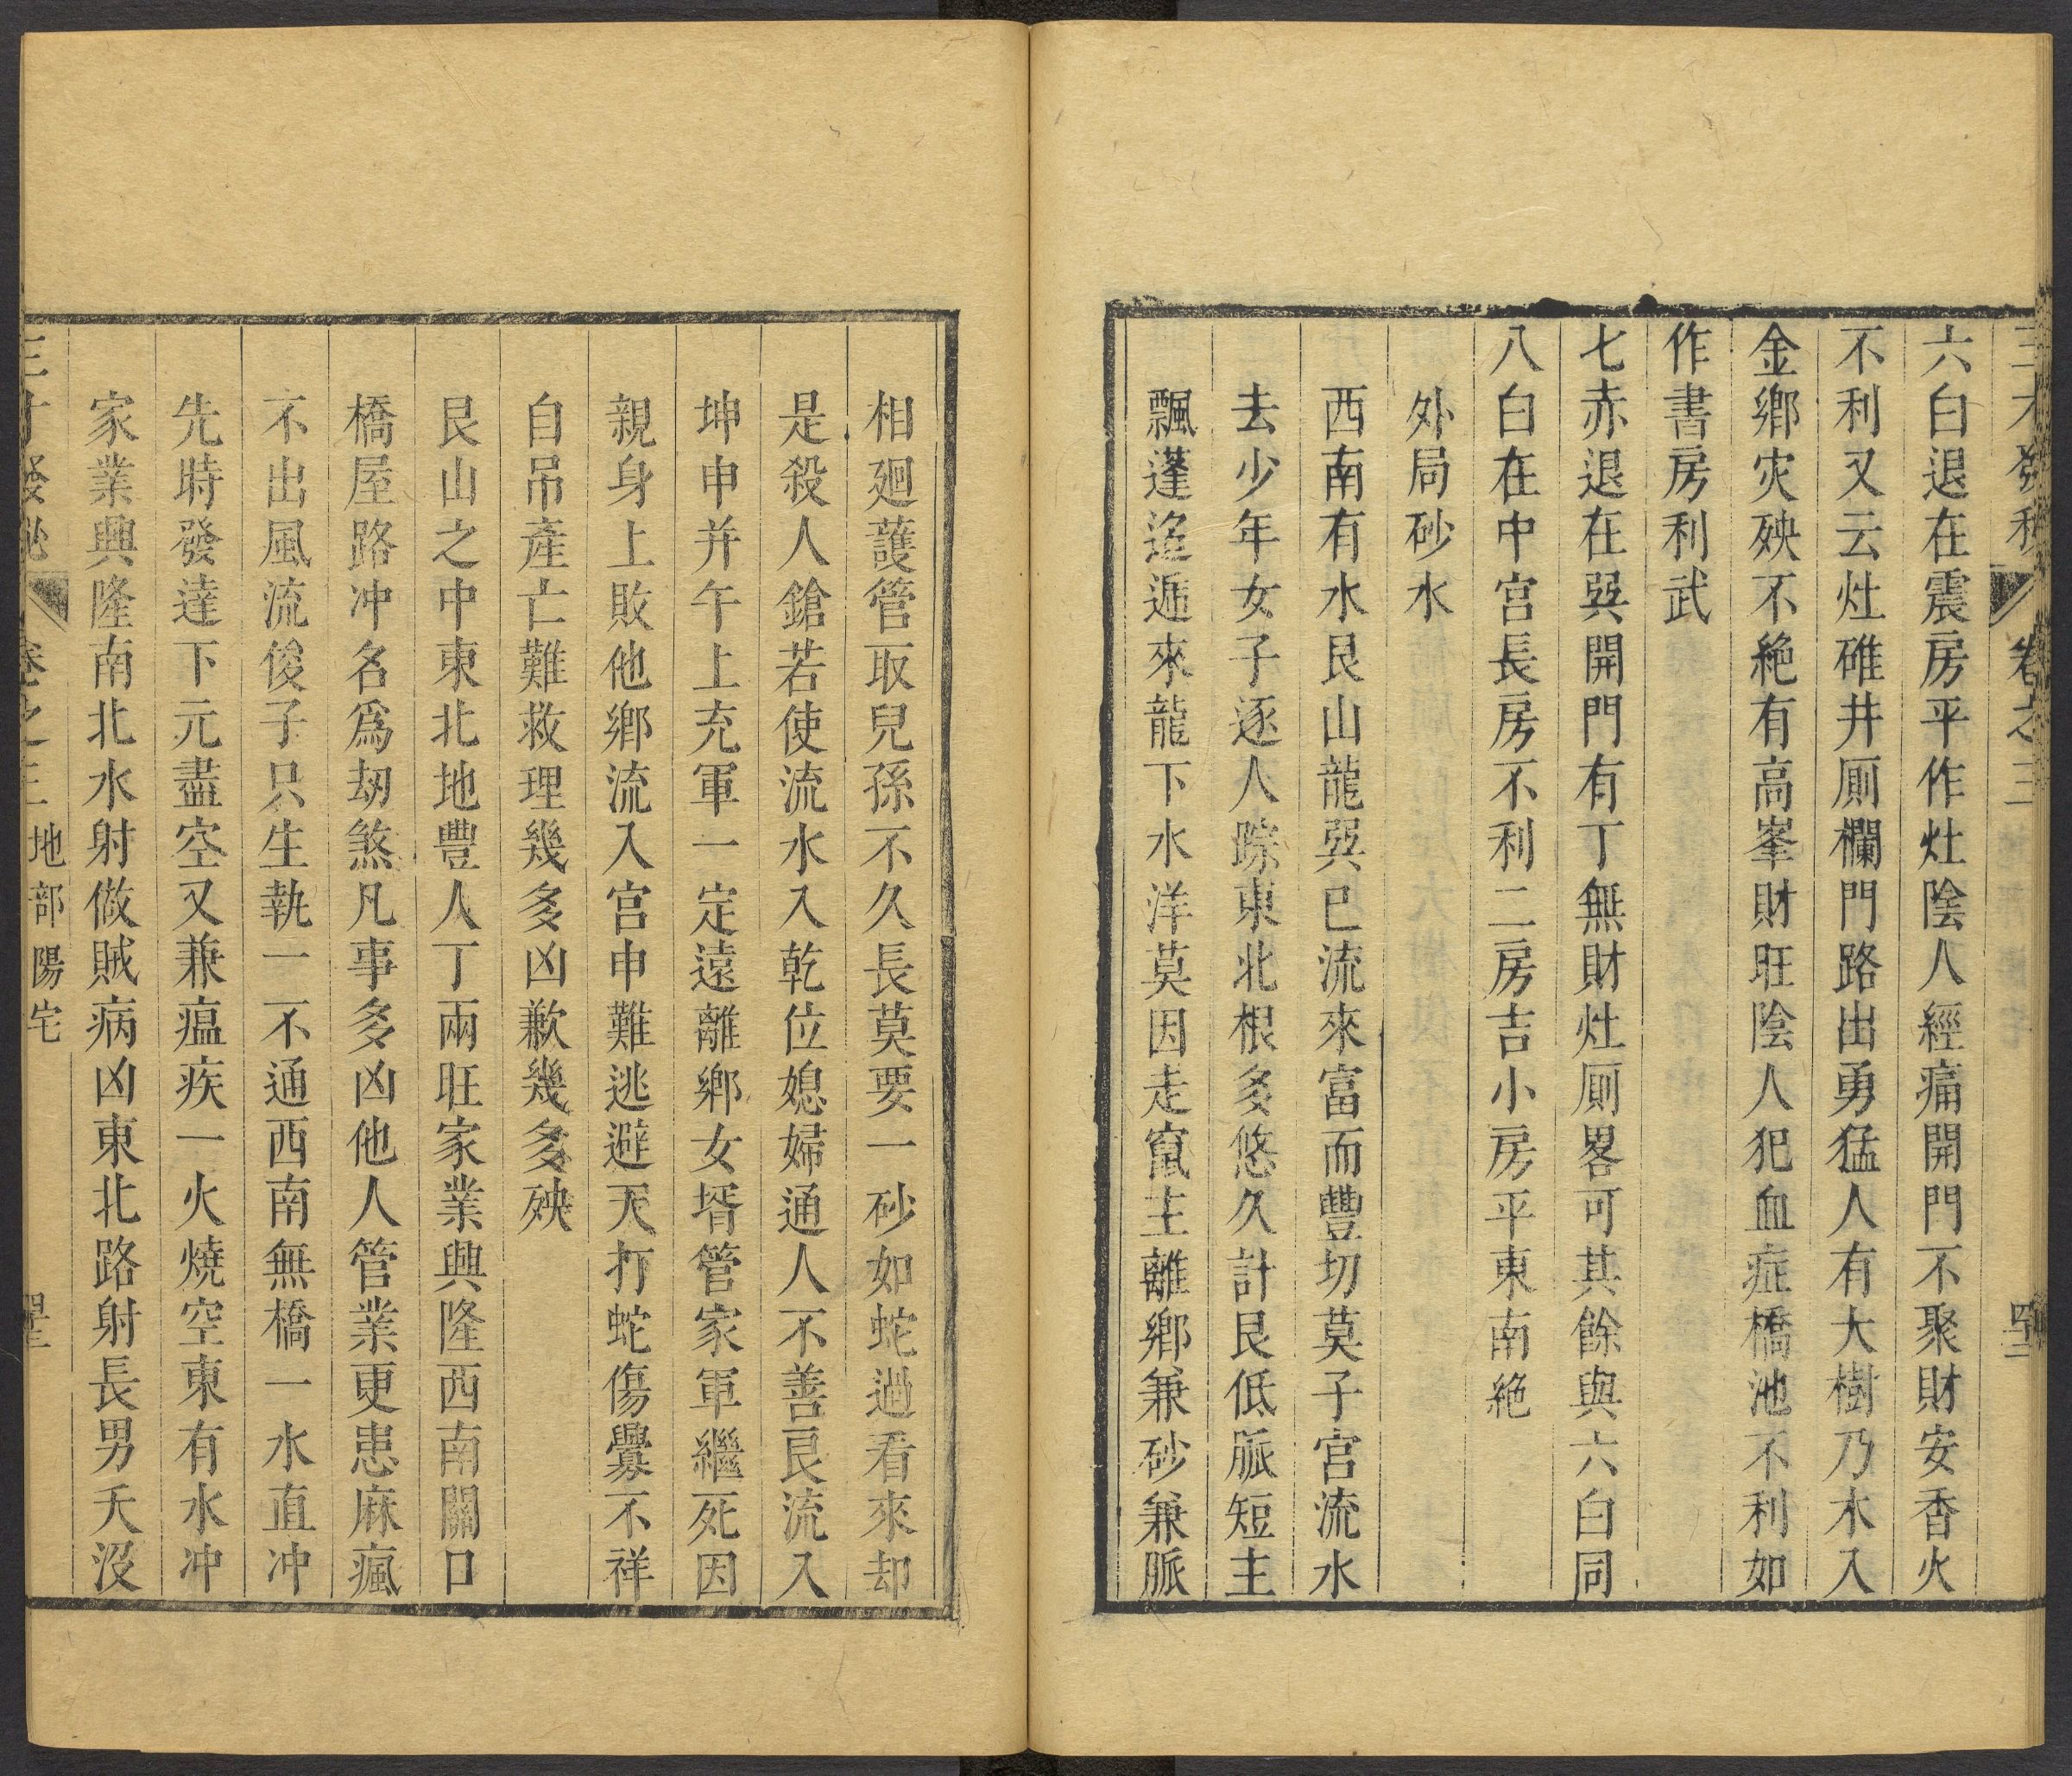 三才發秘 卷之三
六白退在震房平作灶陰人經痛開門不聚財安香火
不利又云灶碓井厠欄門路出勇猛人有大樹乃木入
金鄉灾殃不絶有高峯財旺陰人犯血症橋池不利如
作書房利武
七赤退在巽開門有丁無財灶厠畧可其餘與六白同
八白在中宮長房不利二房吉小房平東南絶
外局砂水
西南有水艮山龍巽巳流來富而豐切莫子宮流水
去少年女子逐人踪東北根多悠久計艮低脈短主
飄蓬迯遞來龍下水洋莫因走竄主離鄉兼砂兼脈
相廻護管取兒孫不久長莫要一砂如蛇過看來却
是殺人鎗若使流水入乾位媳婦通人不善良流入
坤申并午上充軍一定遠離鄉女壻管家軍繼死因
親身上敗他鄉流入宮申難逃避天打蛇傷釁不祥
自吊產亡難救理幾多凶歉幾多殃
艮山之中東北地豐人丁兩旺家業興隆西南關口
橋屋路冲名爲刼煞凡事多凶他人管業更患麻瘋
不出風流俊子只生執一不通西南無橋一水直冲
先時發達下元盡空又兼瘟疾一火燒空東有水冲
家業興隆南北水射做賊病凶東北路射長男夭沒
三才發秘 卷之三 地部陽宅